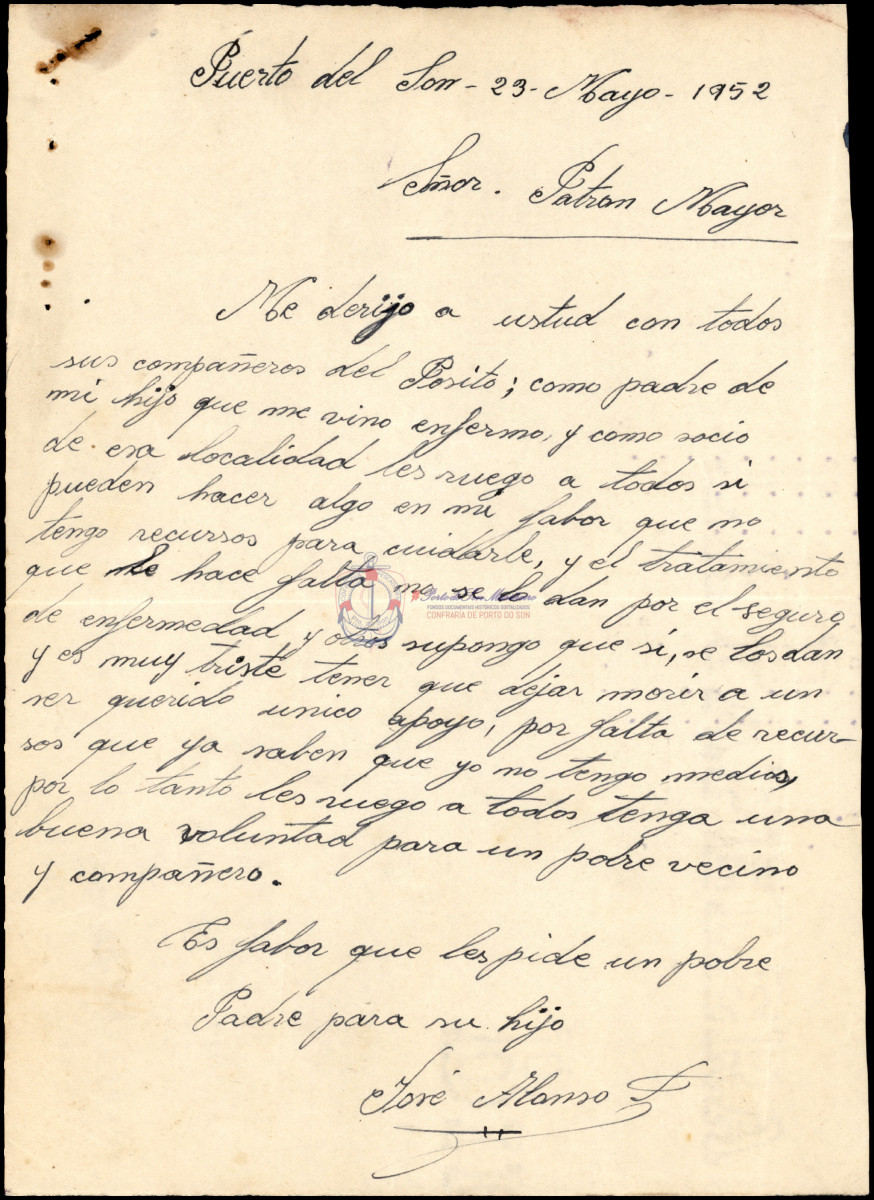 Puerto del Son - 23 - Mayo - 1952
Señor. Patron Mayor
Me derijo a ustud con todos
sus compañeros del Posito; como padre de
mi hijo que me vino enfermo, y como socio
de esa localidad les ruego a todos si
pueden hacer algo en mi fabor que no
tengo recursos para cuidarle, y el tratamiento
que le hace falta no se lo dan por el seguro
de enfermedad y otros supongo que si, se los dan
y es muy triste tener que dejar morir a un
ser querido unico apoyo, por falta de recur-
sos que ya saben que yo no tengo medios,
por lo tanto les ruego a todos tenga una
buena voluntad para un pobre vecino
y compañero.
Es fabor que les pide un pobre
Padre para su hijo
José Alonso
FONDOS DOCUMENTAIS HISTÓRICOS DIXITALIZADOS
CONFRARÍA DE PORTO DO SON